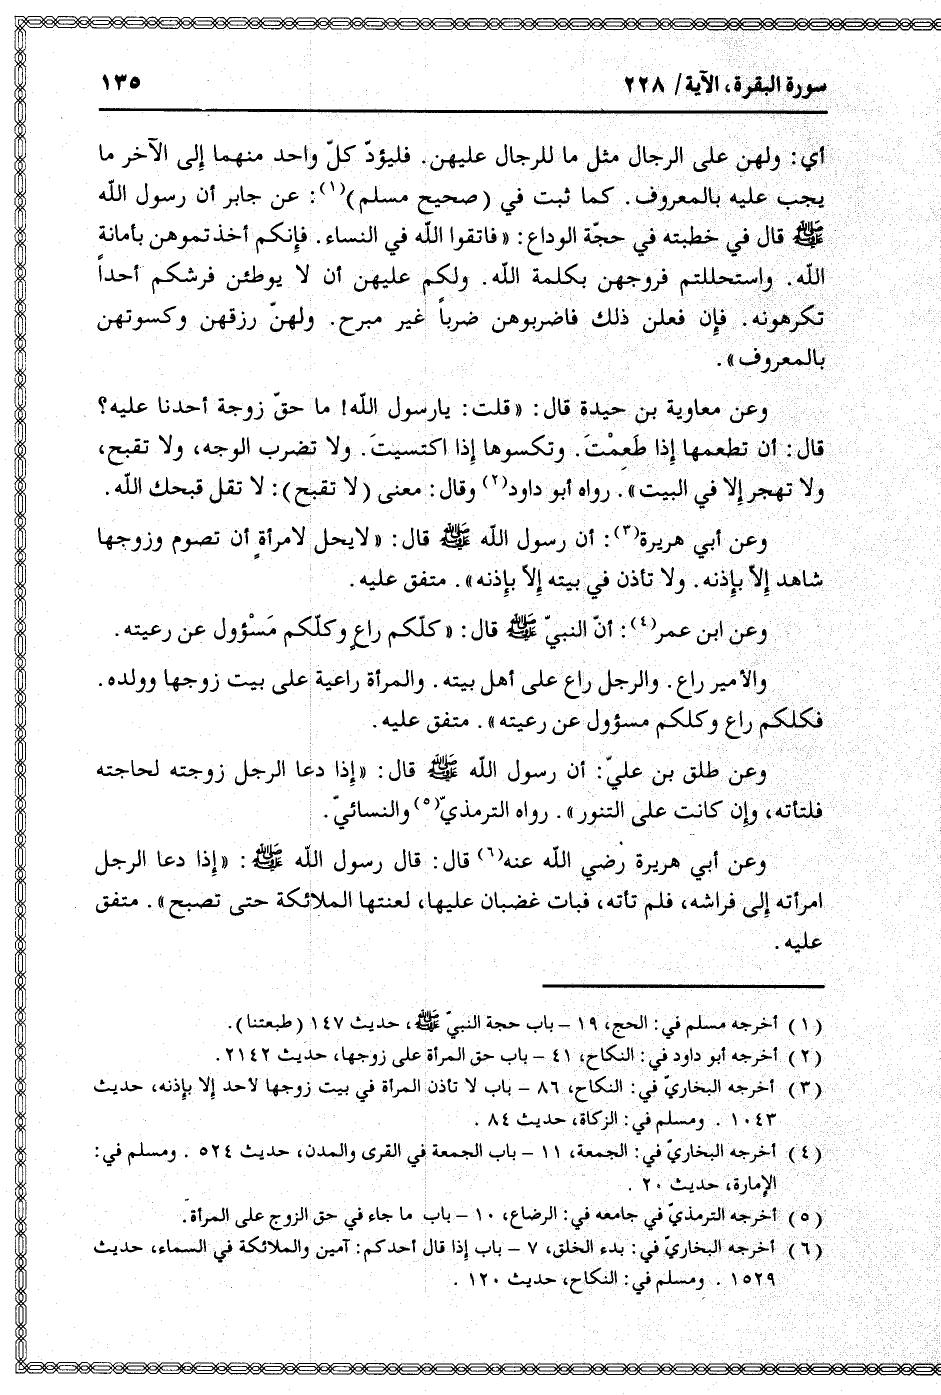 سورة البقرة، الآية/ ٢٢٨
١٣٥
أي: ولهن على الرجال مثل ما للرجال عليهن. فليؤدّ كلّ واحد منهما إلى الآخر ما
يجب عليه بالمعروف. كما ثبت في (صحيح مسلم)(١): عن جابر أن رسول اللّه
ﷺ قال في خطبته في حجّة الوداع: «فاتقوا اللّه في النساء. فإنكم أخذتموهن بأمانة
اللّه. واستحللتم فروجهن بكلمة اللّه. ولكم عليهن أن لا يوطئن فرشكم أحداً
تكرهونه. فإن فعلن ذلك فاضربوهن ضرباً غير مبرح. ولهنّ رزقهن وكسوتهن
بالمعروف».
وعن معاوية بن حيدة قال: «قلت: يارسول اللّه! ما حقّ زوجة أحدنا عليه؟
قال: أن تطعمها إذا طَعِمْتَ. وتكسوها إذا اكتسيتَ. ولا تضرب الوجه، ولا تقبح،
ولا تهجر إلا في البيت». رواه أبو داود(٢) وقال: معنى (لا تقبح): لا تقل قبحك اللّه.
وعن أبي هريرة(٣): أن رسول اللّه ﷺ قال: «لايحل لامرأةٍ أن تصوم وزوجها
شاهد إلاّ بإذنه. ولا تأذن في بيته إلاّ بإذنه». متفق عليه.
وعن ابن عمر(٤): أنّ النبيّ ﷺ قال: «كلّكم راعٍ وكلّكم مَسْؤول عن رعيته.
والأمير راع. والرجل راع على أهل بيته. والمرأة راعية على بيت زوجها وولده.
فكلكم راع وكلكم مسؤول عن رعيته». متفق عليه.
وعن طلق بن عليّ: أن رسول اللّه ﷺ قال: «إذا دعا الرجل زوجته لحاجته
فلتأته، وإن كانت على التنور». رواه الترمذيّ(٥) والنسائيّ.
وعن أبي هريرة رضي اللّه عنه(٦) قال: قال رسول اللّه ﷺ: «إذا دعا الرجل
امرأته إلى فراشه، فلم تأته، فبات غضبان عليها، لعنتها الملائكة حتى تصبح». متفق
عليه.
(١) أخرجه مسلم في: الحج، ١٩ – باب حجة النبيّ ﷺ، حديث ١٤٧ (طبعتنا).
(٢) أخرجه أبو داود في: النكاح، ٤١ – باب حق المرأة على زوجها، حديث ٢١٤٢.
(٣) أخرجه البخاريّ في: النكاح، ٨٦ – باب لا تأذن المرأة في بيت زوجها لأحد إلا بإذنه، حديث
١٠٤٣ . ومسلم في: الزكاة، حديث ٨٤ .
(٤) أخرجه البخاريّ في: الجمعة، ١١ – باب الجمعة في القرى والمدن، حديث ٥٢٤ . ومسلم في:
الإمارة، حديث ٢٠ .
(٥) أخرجه الترمذيّ في جامعه في: الرضاع، ١٠ – باب ما جاء في حق الزوج على المرأة.
(٦) أخرجه البخاريّ في: بدء الخلق، ٧ – باب إذا قال أحدكم: آمين والملائكة في السماء، حديث
١٥٢٩ . ومسلم في: النكاح، حديث ١٢٠ .